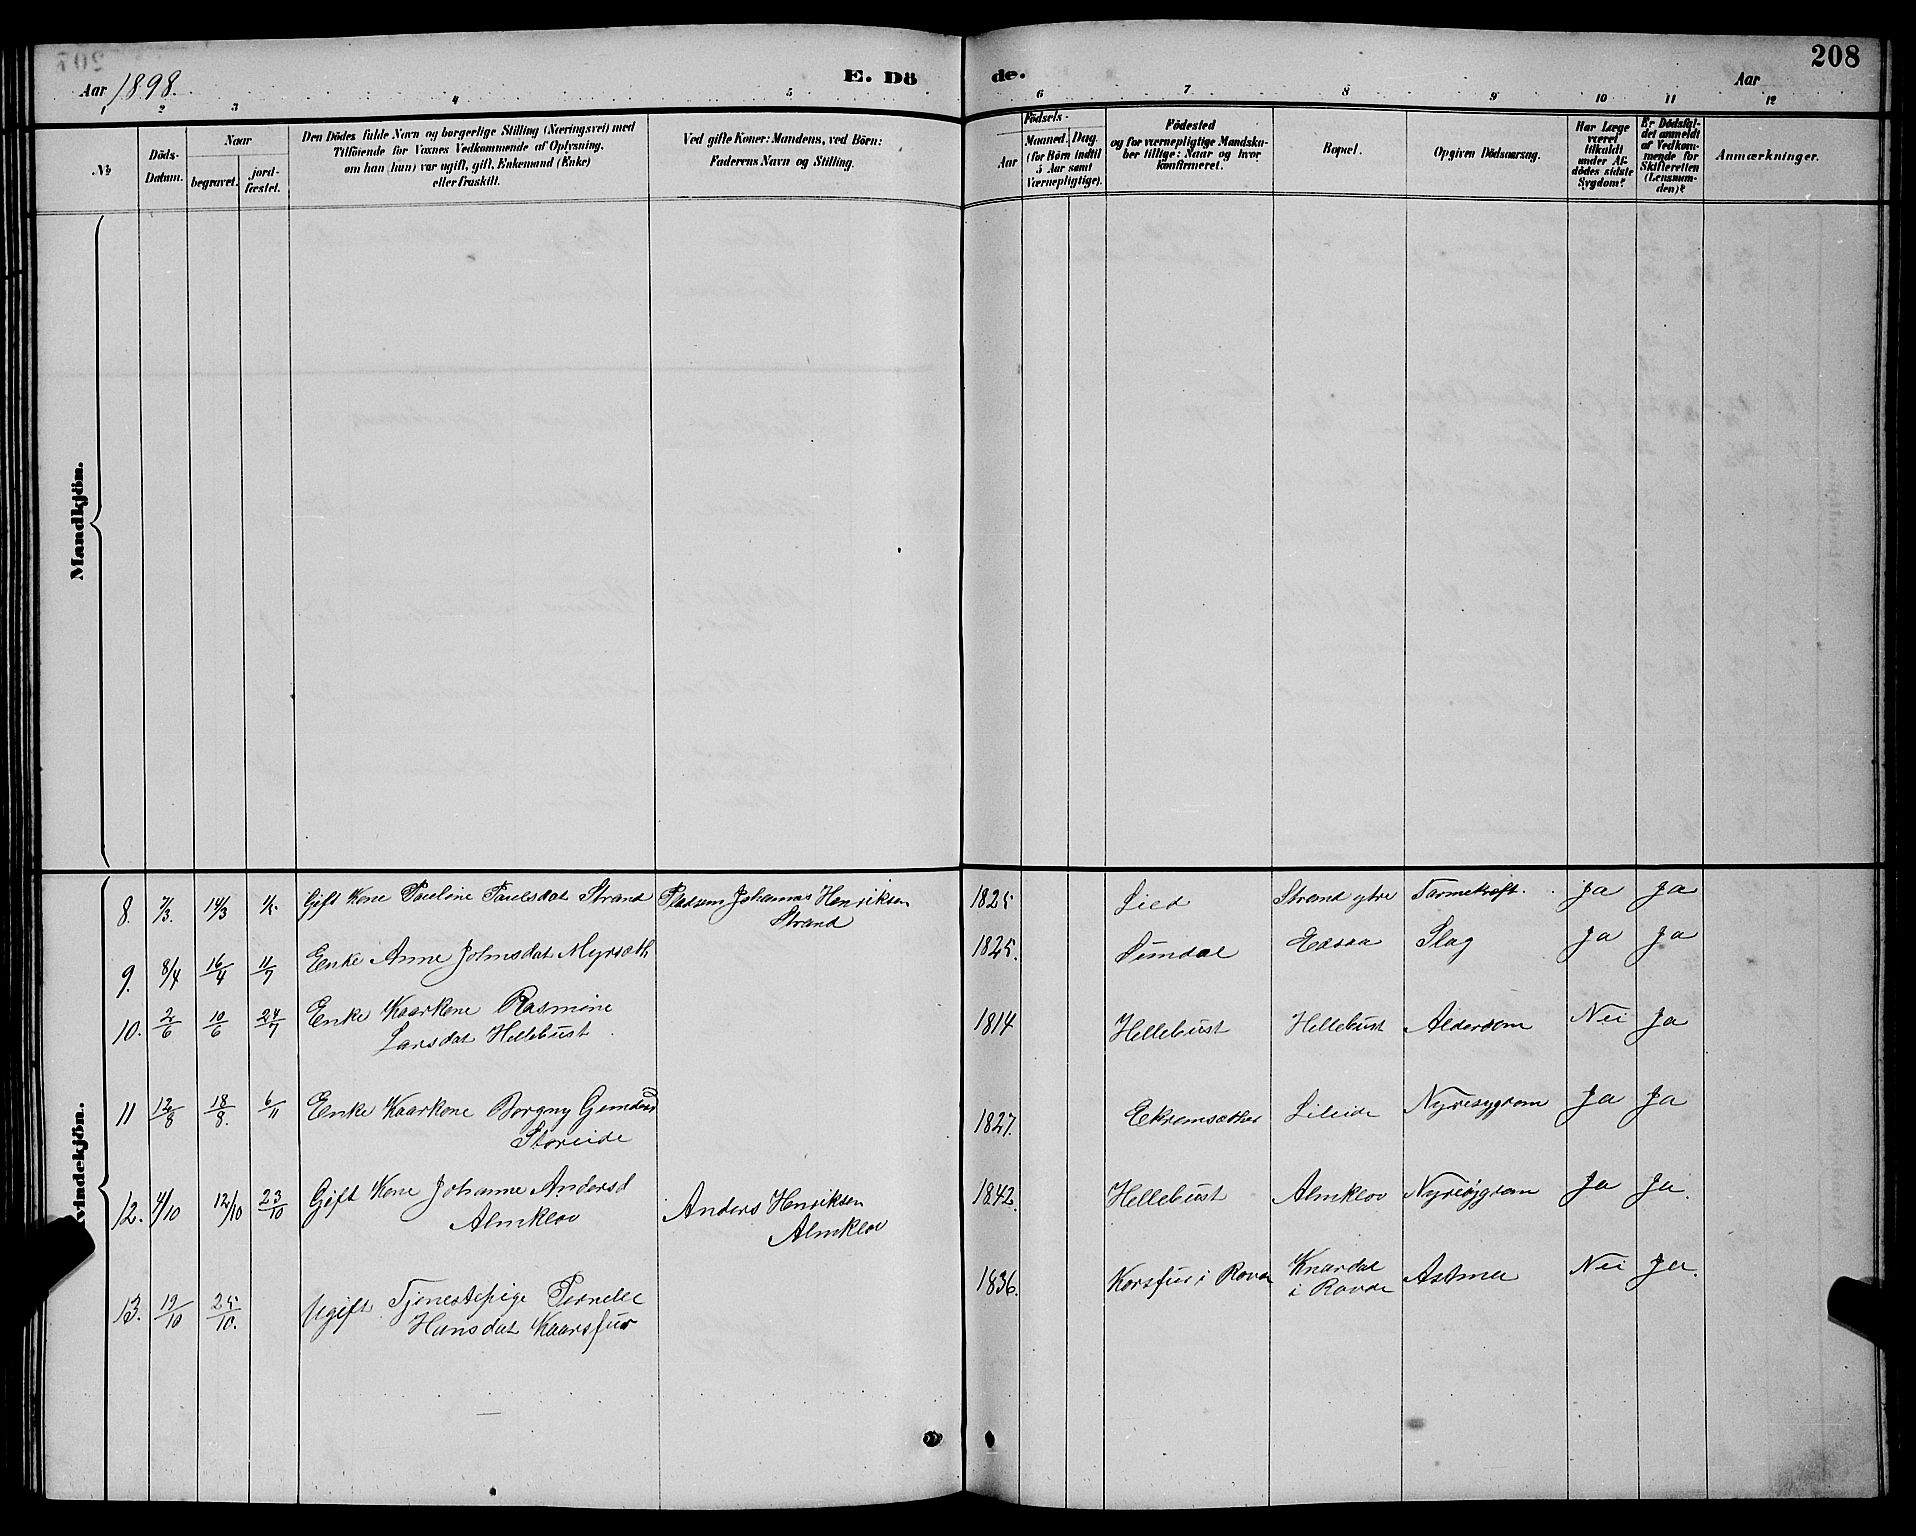 Aar 1898.
E. Dö
de.
Aar
208
2
3
4
5
6
7
8
9
10
11
12
№
Döds-
Datum.
Naar
begravet.
jord-
fæstet.
Den Dödes fulde Navn og borgerlige Stilling (Næringsvei) med
Tilföiende for Voxnes Vedkommende af Oplysning,
om han (hun) var ugift, gift, Enkemand (Enke)
eller fraskilt.
Ved gifte Koner: Mandens, ved Börn:
Faderens Navn og Stilling.
Aar
Födsels-
Maaned.
Dag.
(for Börn indtil
5 Aar samt
Værnepligtige).
Födested
og for værnepligtige Mandska-
ber tillige: Naar og hvor
konfirmeret.
Bopæl.
Opgiven Dödsaarsag.
Har Læge
været
tilkaldt
under Af-
dödes sidste
Sygdom?
Er Dödsfal-
det anmeldt
af Vedkom-
mende for
Skifteretten
(Lensman-
den)?
Anmærkninger.
Mandkjön.
Kvindekjön.
8. 7/3. 14/3 Gift Kone Pauline Paulsdat Strand Pladsm Johannas Henriksen
Strand
1825 Lied Strand ytre Tarmekræft. ja Ja
9. 8/4 16/4 11/7 Enke Anne Johnsdat Myrsæth
1825. Sundal Eidsaa Slag Ja Ja
10. 2/6 10/6 24/7 Enke Kaarkone Rasmine
Larsdat Hellebust
1814 Hellebust Hellebust Alderdom Nei Ja
11 12/8 18/8. 6/11 Enke Kaarkone Borgny Gundersd
Storeide
1827. Ekremsæther Lileide Nyresygdom Ja Ja
12. 4/10 12/10 23/10 Gift Kone Johanne Andersd
Almklov
Anders Henriksen
Almklov
1842. Hellebust Almklov Nyresygdom Ja Ja.
13. 19/10 25/10. Ugift Tjenestepige Pernelle
Hansdat Kaarsfur
1836. Korsfur i Rovde Knardal
i Rovde
Astma Nei Ja.